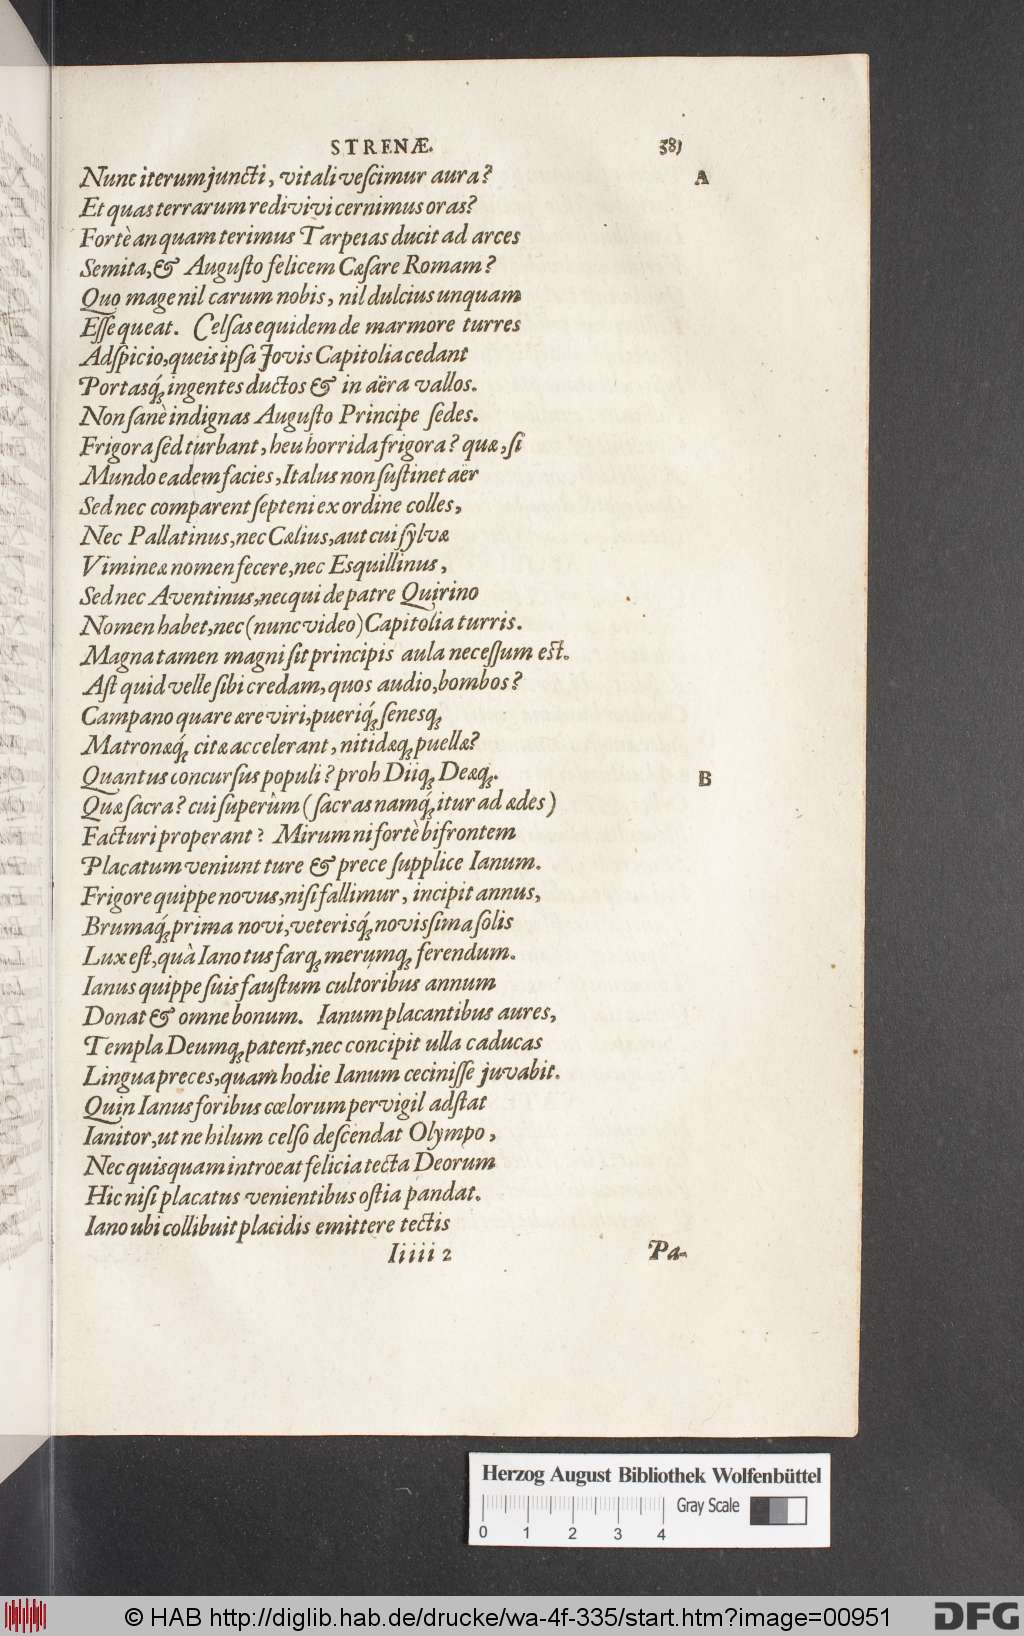 STRENÆ. 381
Nunc iterum juncti, vitali vescimur aura? A
Et quas terrarum redivivi cernimus oras?
Fortè an quam terimus Tarpeias ducit ad arces
Semita, & Augusto felicem Cæsare Romam?
Quo mage nil carum nobis, nil dulcius unquam
Esse queat. Celsas equidem de marmore turres
Adspicio, queis ipsa Jovis Capitolia cedant
Portasq́; ingentes ductos & in aëra vallos.
Non sanè indignas Augusto Principe sedes.
Frigora sed turbant, heu horrida frigora? quæ, si
Mundo eadem facies, Italus non sustinet aër
Sed nec comparent septeni ex ordine colles,
Nec Pallatinus, nec Cælius, aut cui sylvæ
Vimineæ nomen fecere, nec Esquillinus,
Sed nec Aventinus, nec qui de patre Quirino
Nomen habet, nec (nunc video) Capitolia turris.
Magna tamen magni sit principis aula necessum est.
Ast quid velle sibi credam, quos audio, bombos?
Campano quare ære viri, pueriq́; senesq;
Matronæq́; citæ accelerant, nitidæq; puellæ?
Quantus concursus populi? proh Diiq; Deæq;. B
Quæ sacra? cui superûm (sacras namq́; itur ad ædes)
Facturi properant? Mirum ni fortè bifrontem
Placatum veniunt ture & prece supplice Ianum.
Frigore quippe novus, nisi fallimur, incipit annus,
Brumaq́; prima novi, veterisq́; novissima solis
Lux est, quà Iano tus farq; merumq; ferendum.
Ianus quippe suis faustum cultoribus annum
Donat & omne bonum. Ianum placantibus aures,
Templa Deumq; patent, nec concipit ulla caducas
Lingua preces, quam hodie Ianum cecinisse juvabit.
Quin Ianus foribus cœlorum pervigil adstat
Ianitor, ut ne hilum celso descendat Olympo,
Nec quisquam introeat felicia tecta Deorum
Hic nisi placatus venientibus ostia pandat.
Iano ubi collibuit placidis emittere tectis
Iiiii 2 Pa-
Herzog August Bibliothek Wolfenbüttel
Gray Scale
0 1 2 3 4
© HAB http://diglib.hab.de/drucke/wa-4f-335/start.htm?image=00951 DFG